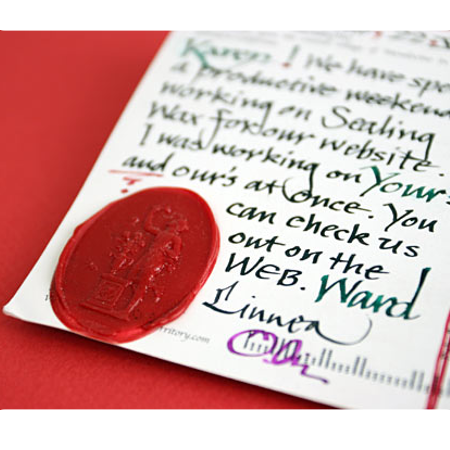 Karen! We have spe
a productive weekend
working on Sealing
Wax for our website.
I was working on Your
and our's at Once. You
can check us
out on the
WEB. Ward
Linnea
ritory.com